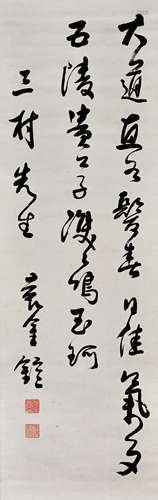 大道直如髮春日佳氣多
五陵貴公子雙雙鳴玉珂
三村先生
袁金鎧